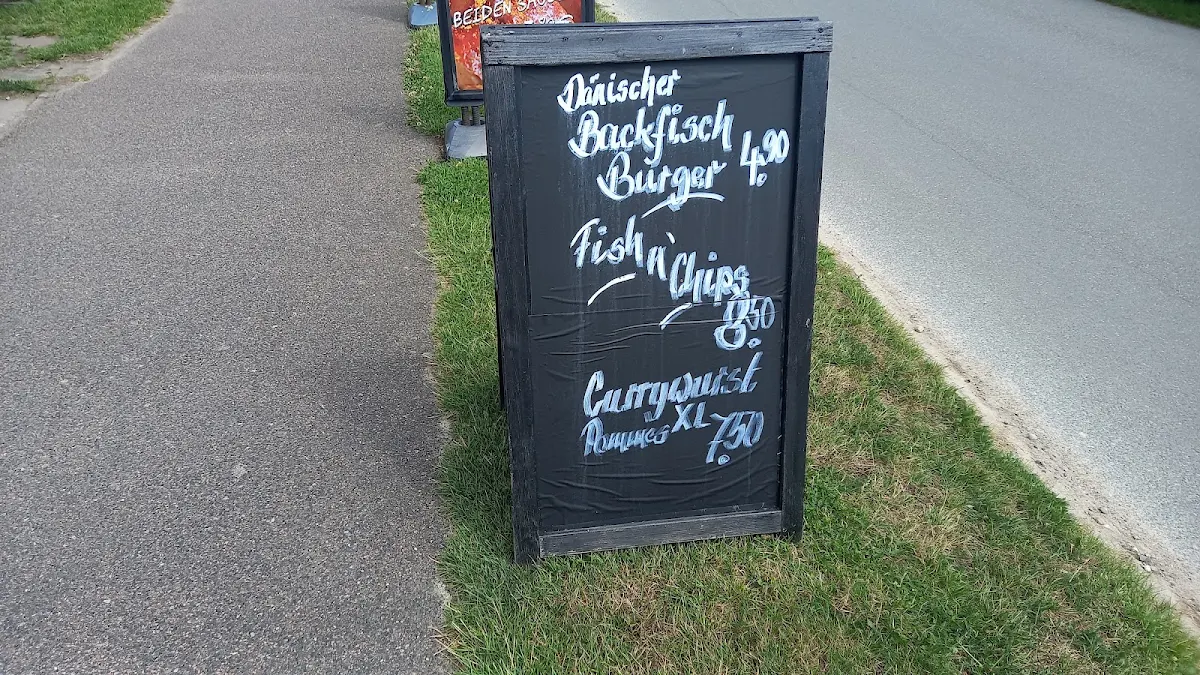 BEIDEN
Dänischer
Backfisch
Burger 4.90
Fish n' Chips
8.50
Currywurst XL
Pommes 7.50